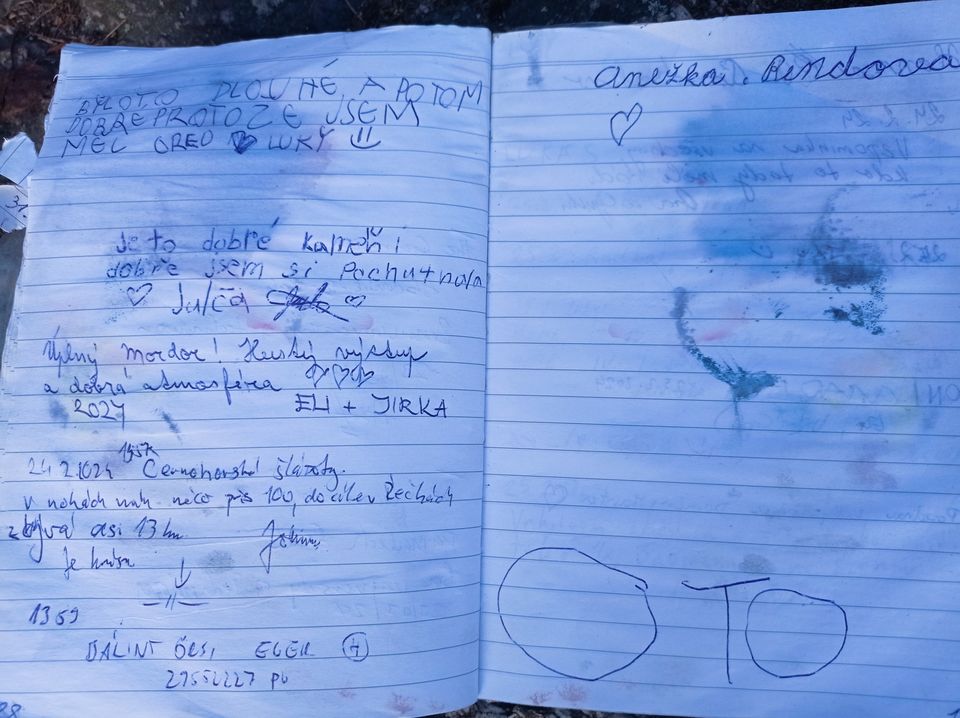 BYLO TO DLOUHÉ A POTOM
DOBRE PROTOZE JSEM
MĚL OREO LUKY
Je to dobré kameňí
dobře jsem si Pochutnala
Julča
Úplný mordor! Hustý výstup
a dobrá atmosféra
2024 ELI + JIRKA
24 2 2024 Černohorské šlápoty.
v nohách něco přes 100, do cíle v Řečkách
zbývá asi 13 km
Je krása
1359
BÁLINT ÖRSI EGER H
anežka. Rindova
OTO